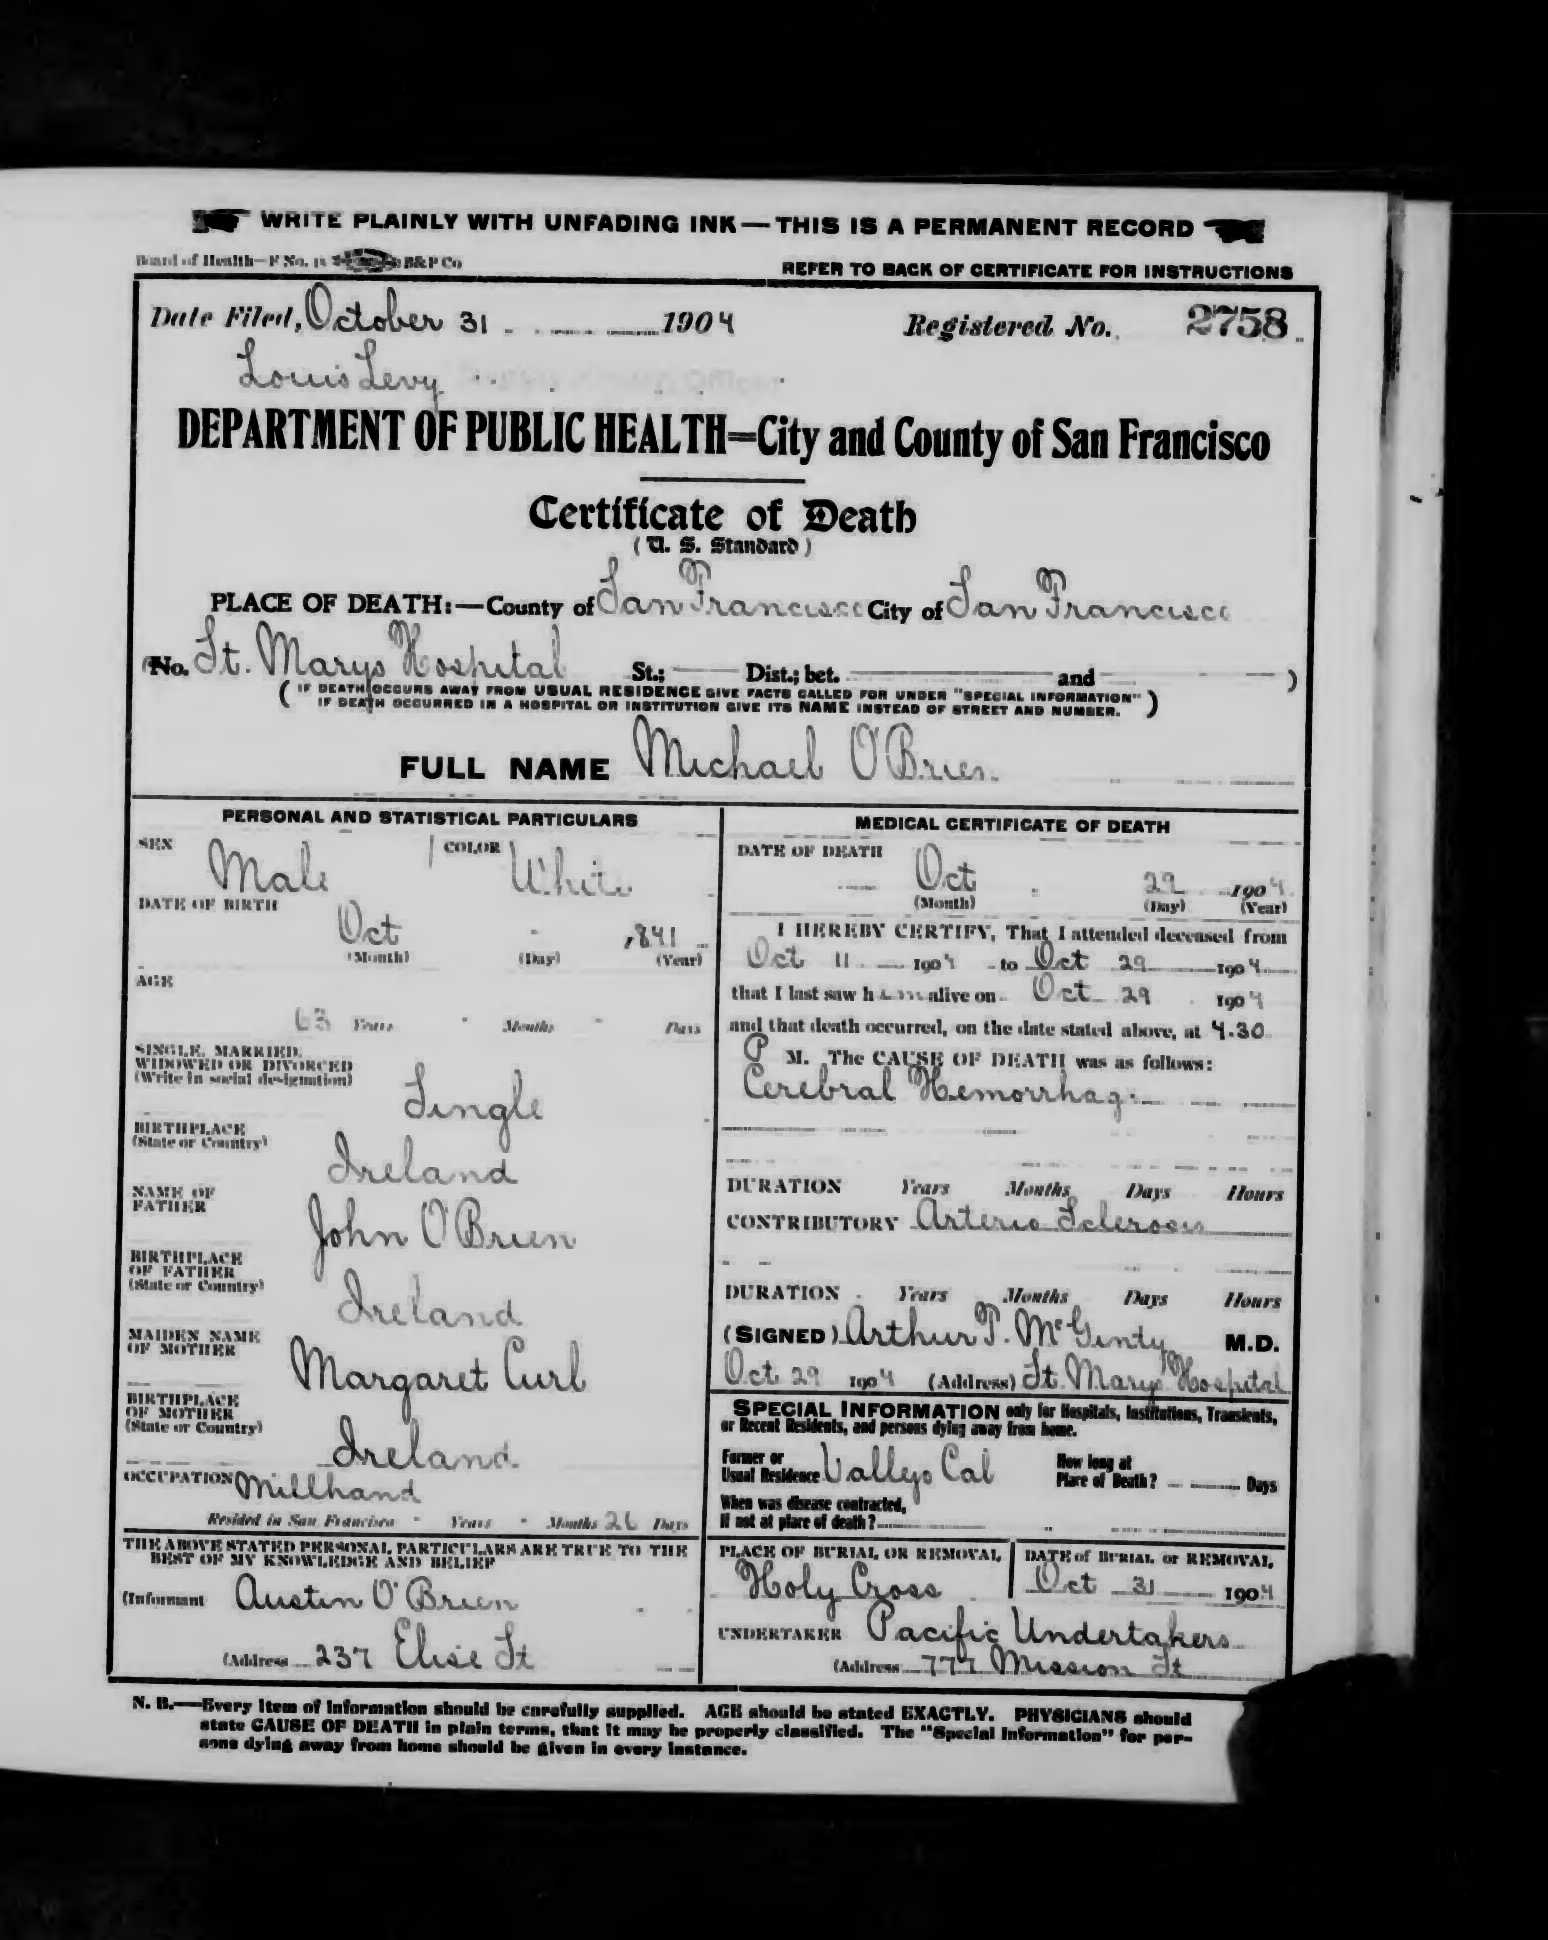 WRITE PLAINLY WITH UNFADING INK — THIS IS A PERMANENT RECORD
Board of Health—F No. 15 B&P Co
REFER TO BACK OF CERTIFICATE FOR INSTRUCTIONS
Date Filed, October 31 1904 Registered No. 2758
Louis Levy
DEPARTMENT OF PUBLIC HEALTH=City and County of San Francisco
Certificate of Death
(U. S. Standard)
PLACE OF DEATH:—County of San Francisco City of San Francisco
(No. St. Marys Hospital St.; Dist.; bet. and )
( IF DEATH OCCURS AWAY FROM USUAL RESIDENCE GIVE FACTS CALLED FOR UNDER "SPECIAL INFORMATION" )
IF DEATH OCCURRED IN A HOSPITAL OR INSTITUTION GIVE ITS NAME INSTEAD OF STREET AND NUMBER.
FULL NAME Michael O'Brien
PERSONAL AND STATISTICAL PARTICULARS
SEX Male COLOR White
DATE OF BIRTH
Oct - 1841
(Month) (Day) (Year)
AGE
63 Years - Months - Days
SINGLE, MARRIED,
WIDOWED OR DIVORCED
(Write in social designation)
Single
BIRTHPLACE
(State or Country)
Ireland
NAME OF
FATHER
John O'Brien
BIRTHPLACE
OF FATHER
(State or Country)
Ireland
MAIDEN NAME
OF MOTHER
Margaret Curl
BIRTHPLACE
OF MOTHER
(State or Country)
Ireland
OCCUPATION Millhand
Resided in San Francisco - Years - Months 26 Days
THE ABOVE STATED PERSONAL PARTICULARS ARE TRUE TO THE
BEST OF MY KNOWLEDGE AND BELIEF
(Informant Austin O'Brien
(Address 237 Elsie St
MEDICAL CERTIFICATE OF DEATH
DATE OF DEATH
Oct 29 1904
(Month) (Day) (Year)
I HEREBY CERTIFY, That I attended deceased from
Oct 11 1904 to Oct 29 1904
that I last saw him alive on Oct 29 1904
and that death occurred, on the date stated above, at 4.30
P M. The CAUSE OF DEATH was as follows:
Cerebral Hemorrhage
DURATION Years Months Days Hours
CONTRIBUTORY Arterio Sclerosis
DURATION Years Months Days Hours
(SIGNED) Arthur T. McGinty M.D.
Oct 29 1904 (Address) St. Marys Hospital
SPECIAL INFORMATION only for Hospitals, Institutions, Transients,
or Recent Residents, and persons dying away from home.
Former or
Usual Residence Vallejo Cal
How long at
Place of Death? Days
When was disease contracted,
If not at place of death?
PLACE OF BURIAL OR REMOVAL
Holy Cross
DATE of BURIAL or REMOVAL
Oct 31 1904
UNDERTAKER Pacific Undertakers
(Address 777 Mission St
N. B.—Every item of information should be carefully supplied. AGE should be stated EXACTLY. PHYSICIANS should
state CAUSE OF DEATH in plain terms, that it may be properly classified. The "Special Information" for per-
sons dying away from home should be given in every instance.